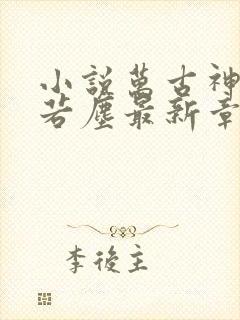 小說萬古神
若塵最新章
李後主